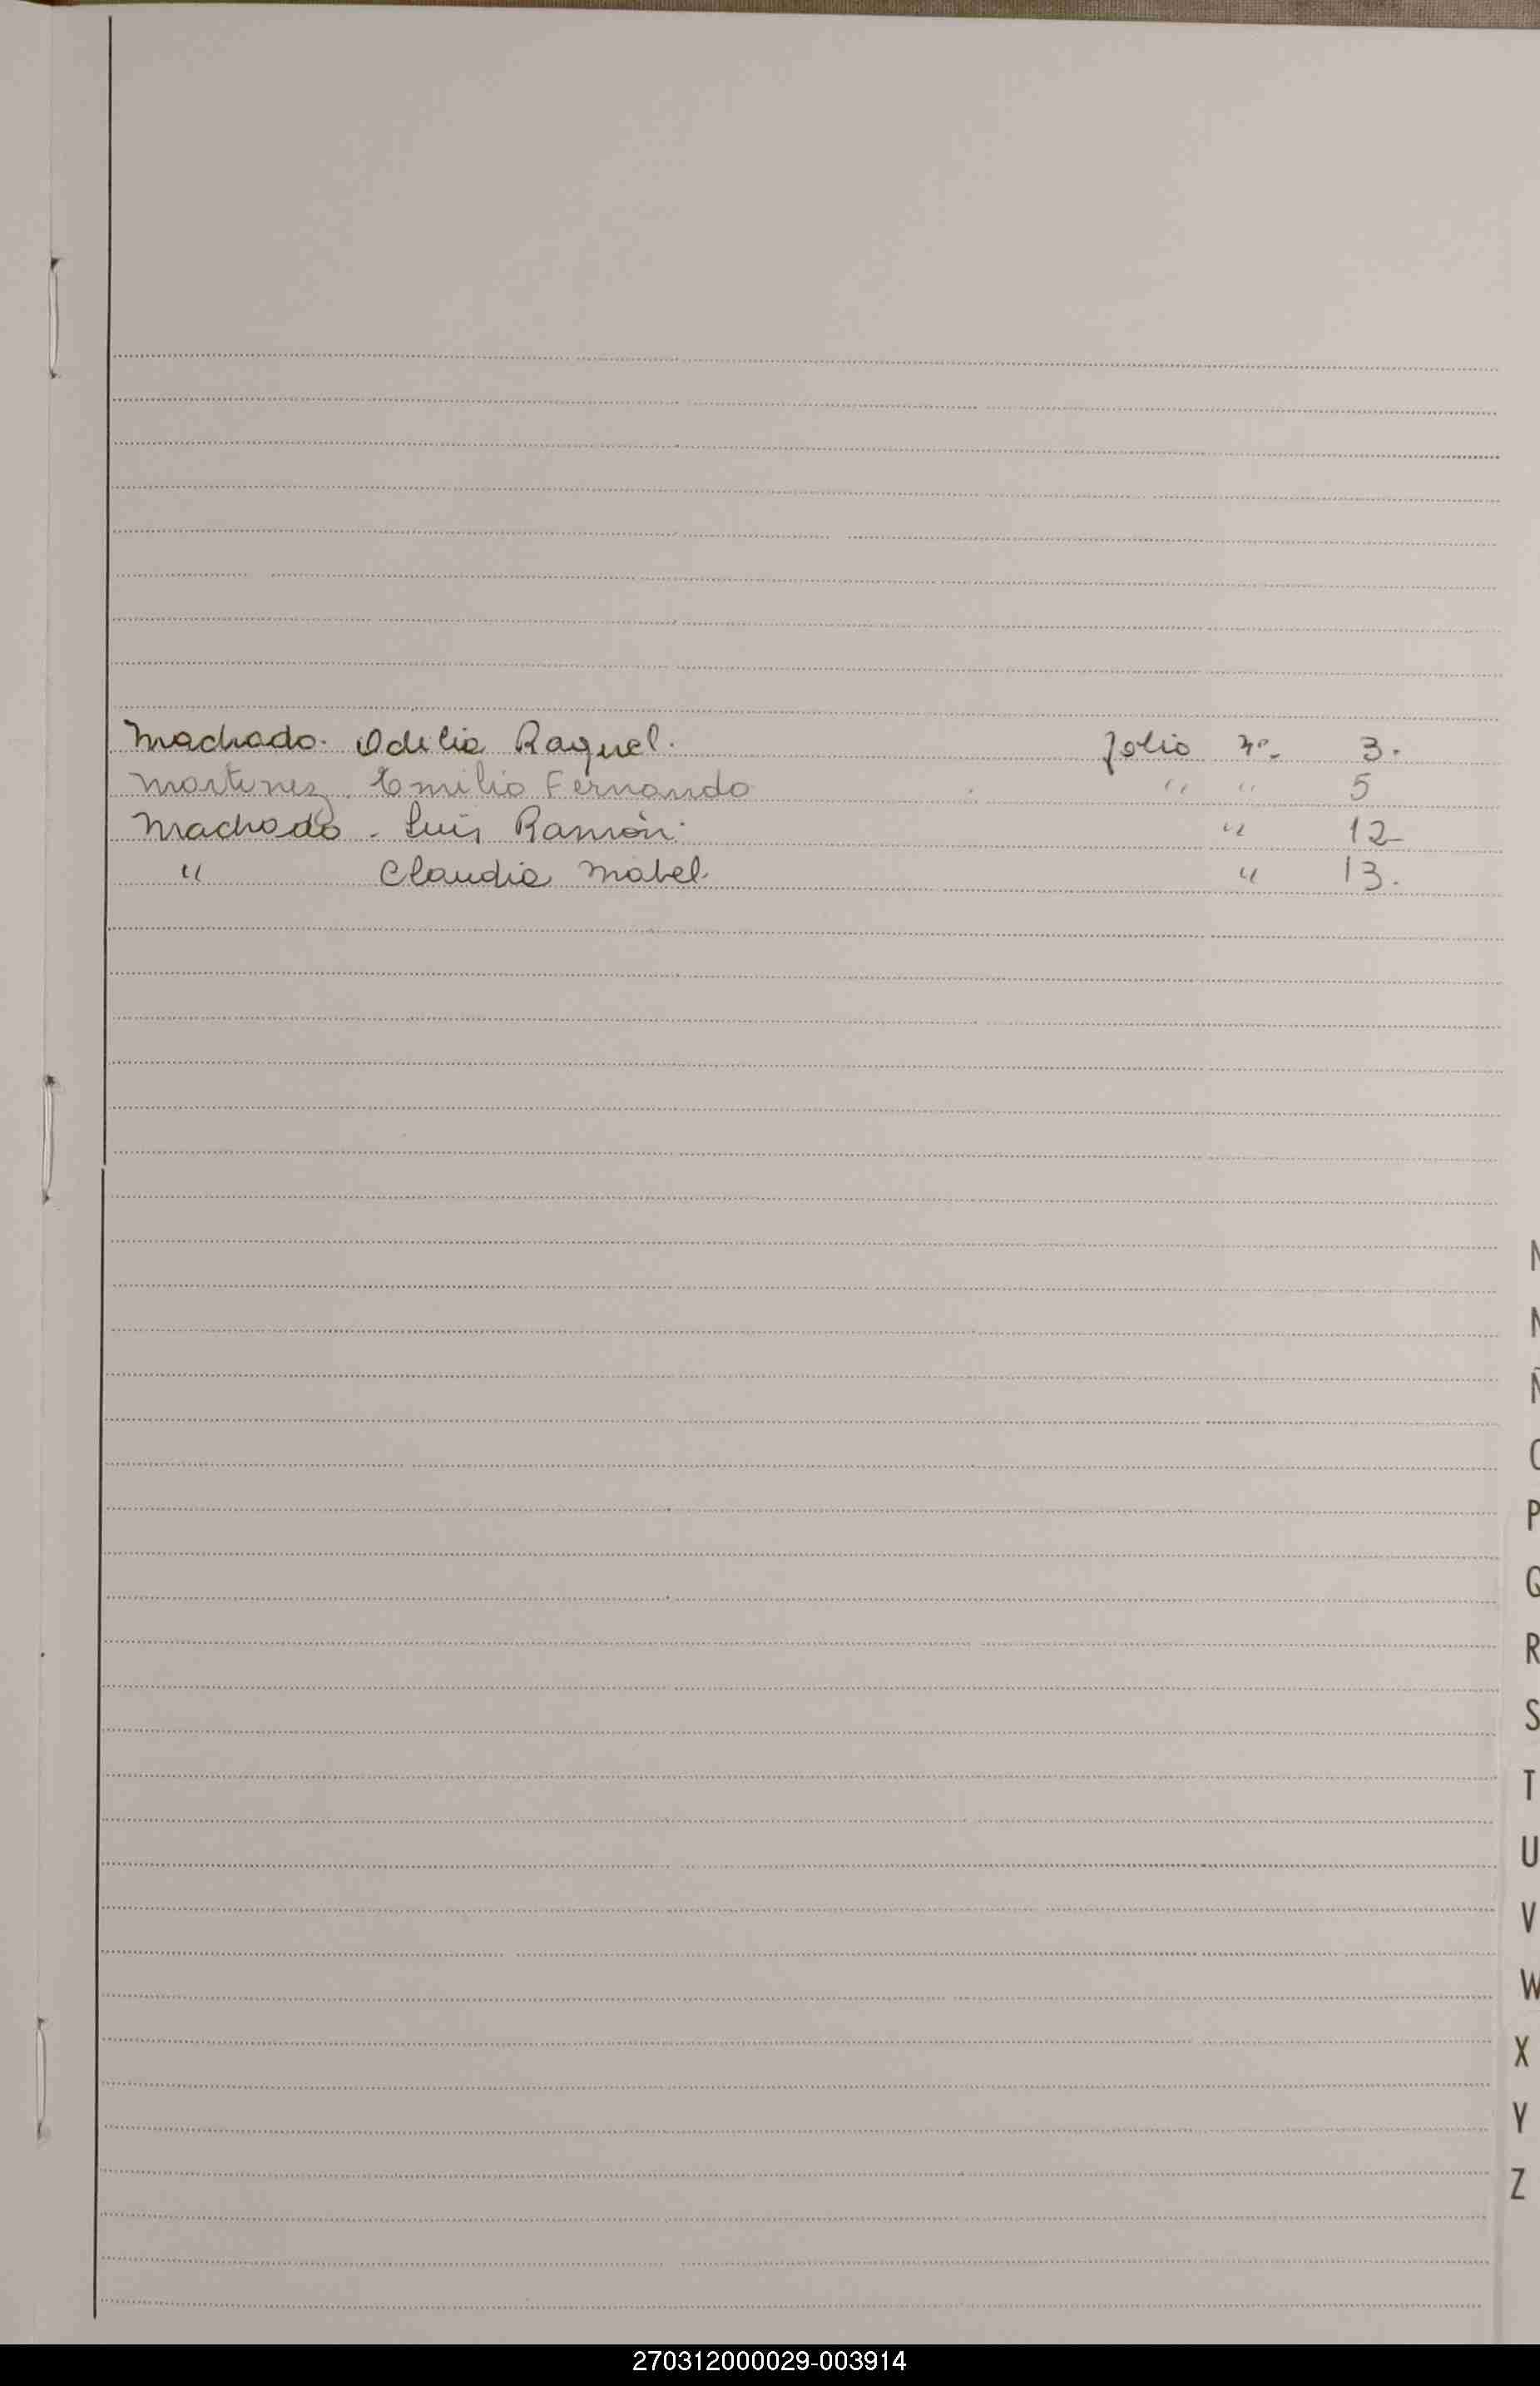 Machado. Odilia Raquel. folio nº. 3.
Martinez. Emilio Fernando " " 5
Machado - Luis Ramón. " 12-
" Claudia Mabel. " 13.
N
Ñ
P
Q
R
S
T
U
V
W
X
Y
Z
270312000029-003914